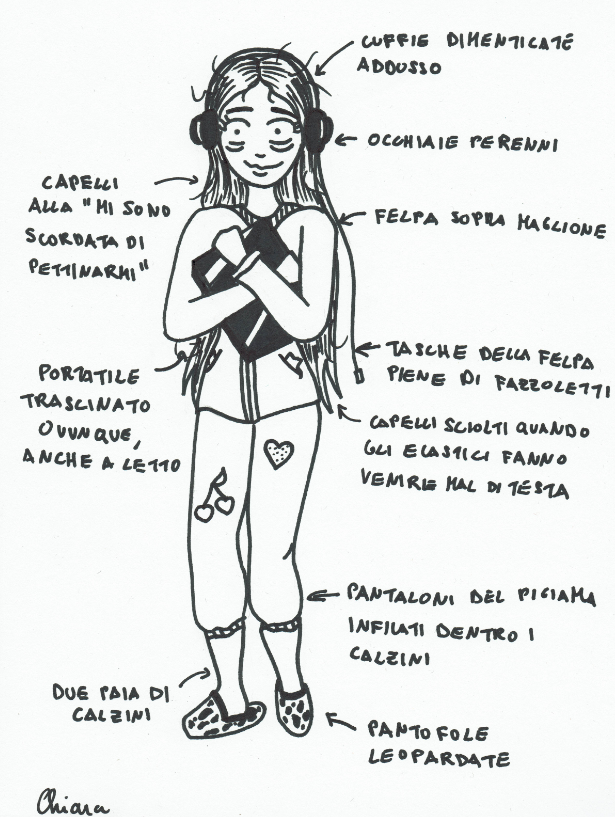 CUFFIE DIMENTICATE
ADDOSSO
OCCHIAIE PERENNI
CAPELLI
ALLA "MI SONO
SCORDATA DI
PETTINARMI"
FELPA SOPRA MAGLIONE
TASCHE DELLA FELPA
PIENE DI FAZZOLETTI
PORTATILE
TRASCINATO
OVUNQUE,
ANCHE A LETTO
CAPELLI SCIOLTI QUANDO
GLI ELASTICI FANNO
VENIRE MAL DI TESTA
PANTALONI DEL PIGIAMA
INFILATI DENTRO I
CALZINI
DUE PAIA DI
CALZINI
PANTOFOLE
LEOPARDATE
Chiara